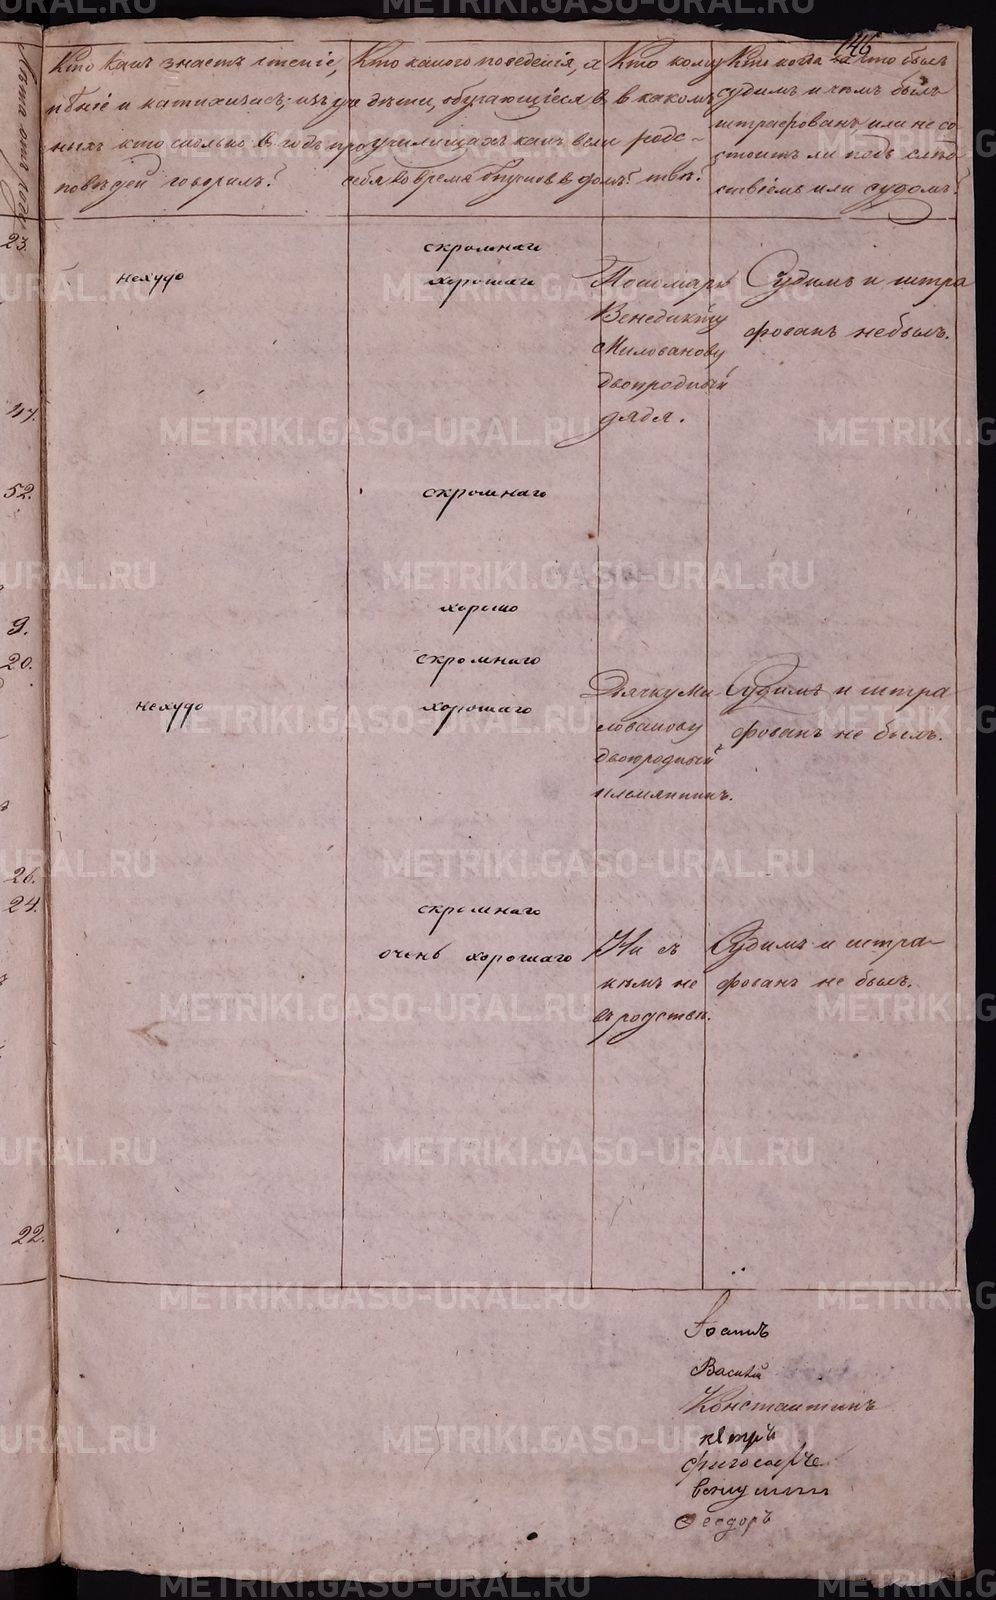 146
Кто какъ знаетъ чтенiе,
пѣнiе и катихизисъ: изъ уче-
ныхъ кто сколько въ годъ про
повѣдей говорилъ?
Кто какого поведенiя, а
дѣти, обучающiеся въ
училищахъ какъ вели
себя во время отпусковъ въ домъ?
Кто кому
въ какомъ
родс-
твѣ?
Кто когда за что былъ
судимъ и чѣмъ былъ
штрафованъ или не со-
стоитъ ли подъ слѣд-
ствiемъ или судомъ?
23.
47.
52.
9.
20.
26.
24.
22.
нехудо
скромнаго
хорошаго
Пономарю
Венедикту
Милованову
двоюродный
дядя.
Судимъ и штра
фованъ небылъ.
скромнаго
хорошо
скромнаго
нехудо
хорошаго
Дьячку Ми-
лованову
двоюродный
племянникъ.
Судимъ и штра
фованъ не былъ.
скромнаго
очень хорошаго
Ни съ
кѣмъ не
въ родствѣ.
Судимъ и штра-
фованъ не былъ.
Iоаннъ
Василiй
Константинъ
петръ
Феодоръ
METRIKI.GASO-URAL.RU